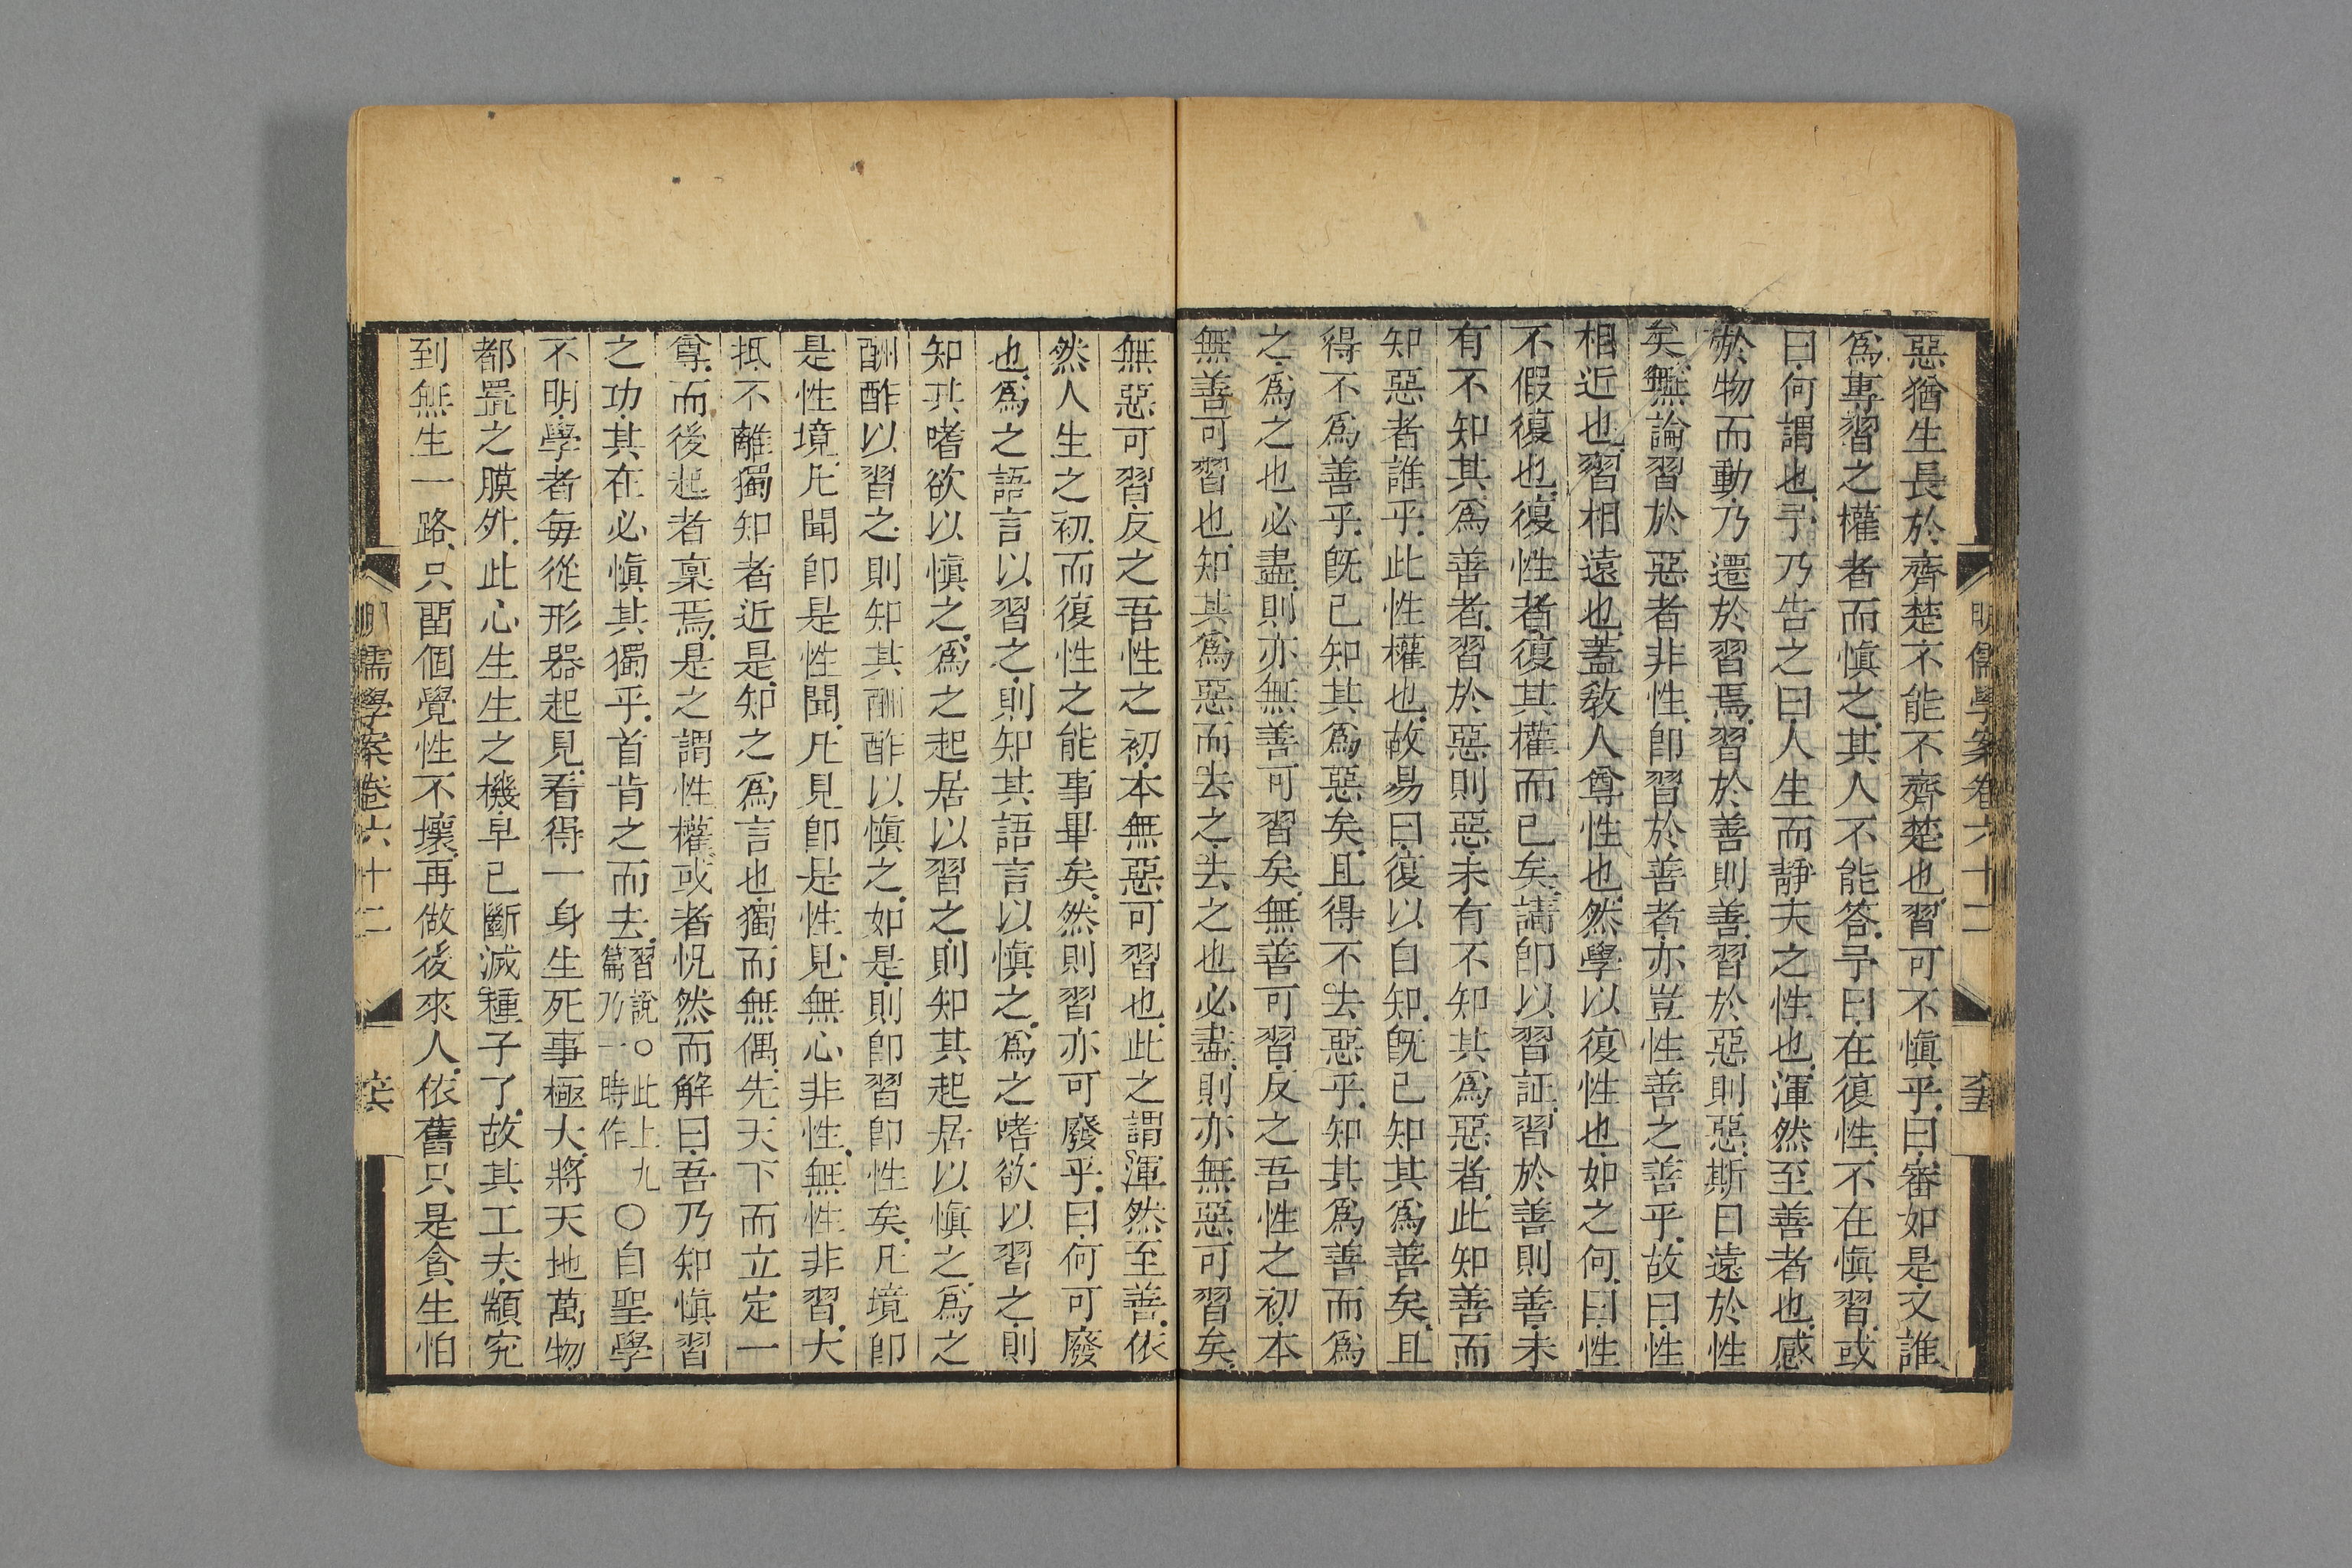 惡猶生長於齊楚不能不齊楚也習可不愼乎曰審如是又誰
爲專習之權者而愼之其人不能答予曰在復性不在愼習或
曰何謂也予乃告之曰人生而靜天之性也渾然至善者也感
於物而動乃遷於習焉習於善則善習於惡則惡斯日遠於性
矣無論習於惡者非性卽習於善者亦豈性善之善乎故曰性
相近也習相遠也蓋敎人尊性也然學以復性也如之何曰性
不假復也復性者復其權而已矣請卽以習証習於善則善未
有不知其爲善者習於惡則惡未有不知其爲惡者此知善而
知惡者誰乎此性權也故易曰復以自知旣已知其爲善矣且
得不爲善乎旣已知其爲惡矣且得不去惡乎知其爲善而爲
之爲之也必盡則亦無善可習矣無善可習反之吾性之初本
無善可習也知其爲惡而去之去之也必盡則亦無惡可習矣
無惡可習反之吾性之初本無惡可習也此之謂渾然至善依
然人生之初而復性之能事畢矣然則習亦可廢乎曰何可廢
也爲之語言以習之則知其語言以愼之爲之嗜欲以習之則
知其嗜欲以愼之爲之起居以習之則知其起居以愼之爲之
酬酢以習之則知其酬酢以愼之如是則卽習卽性矣凡境卽
是性境凡聞卽是性聞凡見卽是性見無心非性無性非習大
抵不離獨知者近是知之爲言也獨而無偶先天下而立定一
尊而後起者稟焉是之謂性權或者怳然而解曰吾乃知愼習
之功其在必愼其獨乎首肯之而去習說○此上九篇乃一時作○自聖學
不明學者每從形器起見看得一身生死事極大將天地萬物
都置之膜外此心生生之機早已斷滅種子了故其工夫顓究
到無生一路只留個覺性不壞再做後來人依舊只是貪生怕
明儒學案卷六十二
明儒學案卷六十二